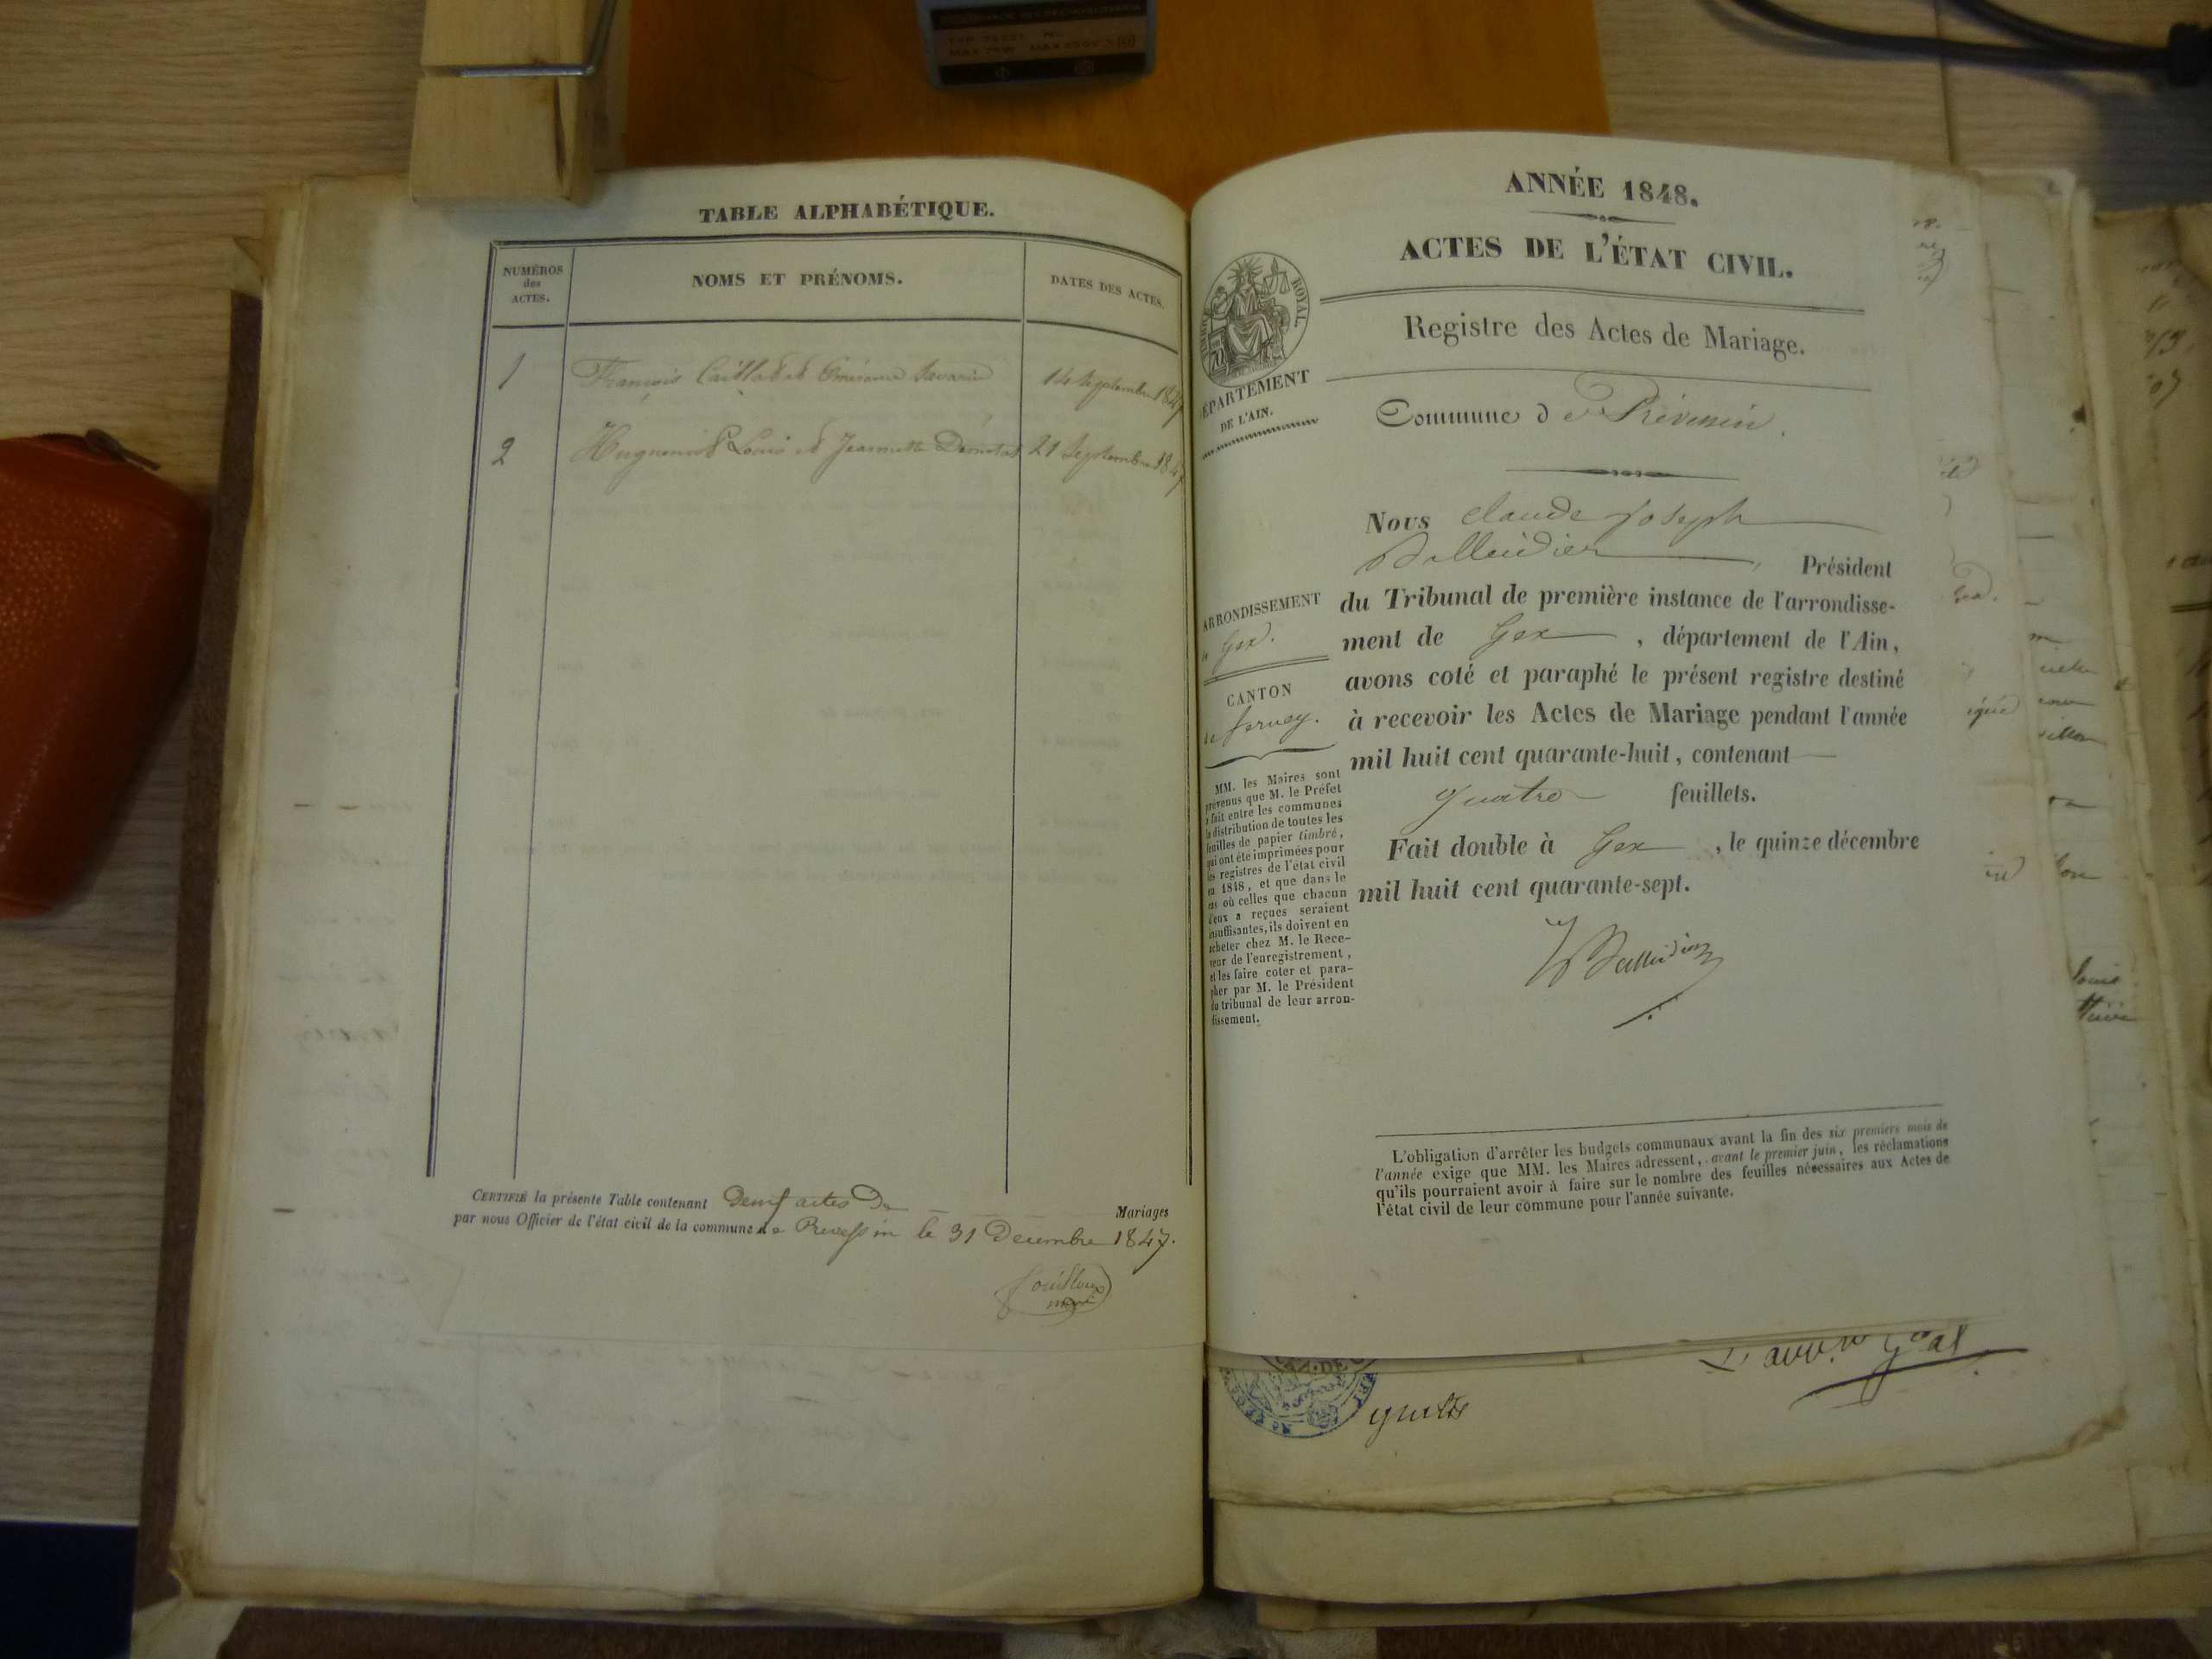 TABLE ALPHABÉTIQUE.
NUMÉROS
des
ACTES.
NOMS ET PRÉNOMS.
DATES DES ACTES.
1 François Caillat et Savarin 14 Septembre 1847
2 Hugonnet Louis et Jeannette 21 Septembre 1847
CERTIFIÉ la présente Table contenant Deux actes De Mariages
par nous Officier de l'état civil de la commune de Prevessin le 31 Decembre 1847.
ANNÉE 1848.
ACTES DE L'ÉTAT CIVIL.
Registre des Actes de Mariage.
ROYAL
DÉPARTEMENT
DE L'AIN.
Commune de Prévessin.
Nous Claude Joseph
, Président
du Tribunal de première instance de l'arrondisse-
ment de Gex, département de l'Ain,
avons coté et paraphé le présent registre destiné
à recevoir les Actes de Mariage pendant l'année
mil huit cent quarante-huit, contenant
quatre feuillets.
Fait double à Gex, le quinze décembre
mil huit cent quarante-sept.
ARRONDISSEMENT
de Gex.
CANTON
de Ferney.
MM. les Maires sont
prévenus que M. le Préfet
a fait entre les communes
la distribution de toutes les
feuilles de papier timbré,
qui ont été imprimées pour
les registres de l'état civil
en 1848, et que dans le
cas où celles que chacun
d'eux a reçues seraient
insuffisantes, ils doivent en
acheter chez M. le Rece-
veur de l'enregistrement,
et les faire coter et para-
pher par M. le Président
du tribunal de leur arron-
dissement.
L'obligation d'arrêter les budgets communaux avant la fin des six premiers mois de
l'année exige que MM. les Maires adressent, avant le premier juin, les réclamations
qu'ils pourraient avoir à faire sur le nombre des feuilles nécessaires aux Actes de
l'état civil de leur commune pour l'année suivante.